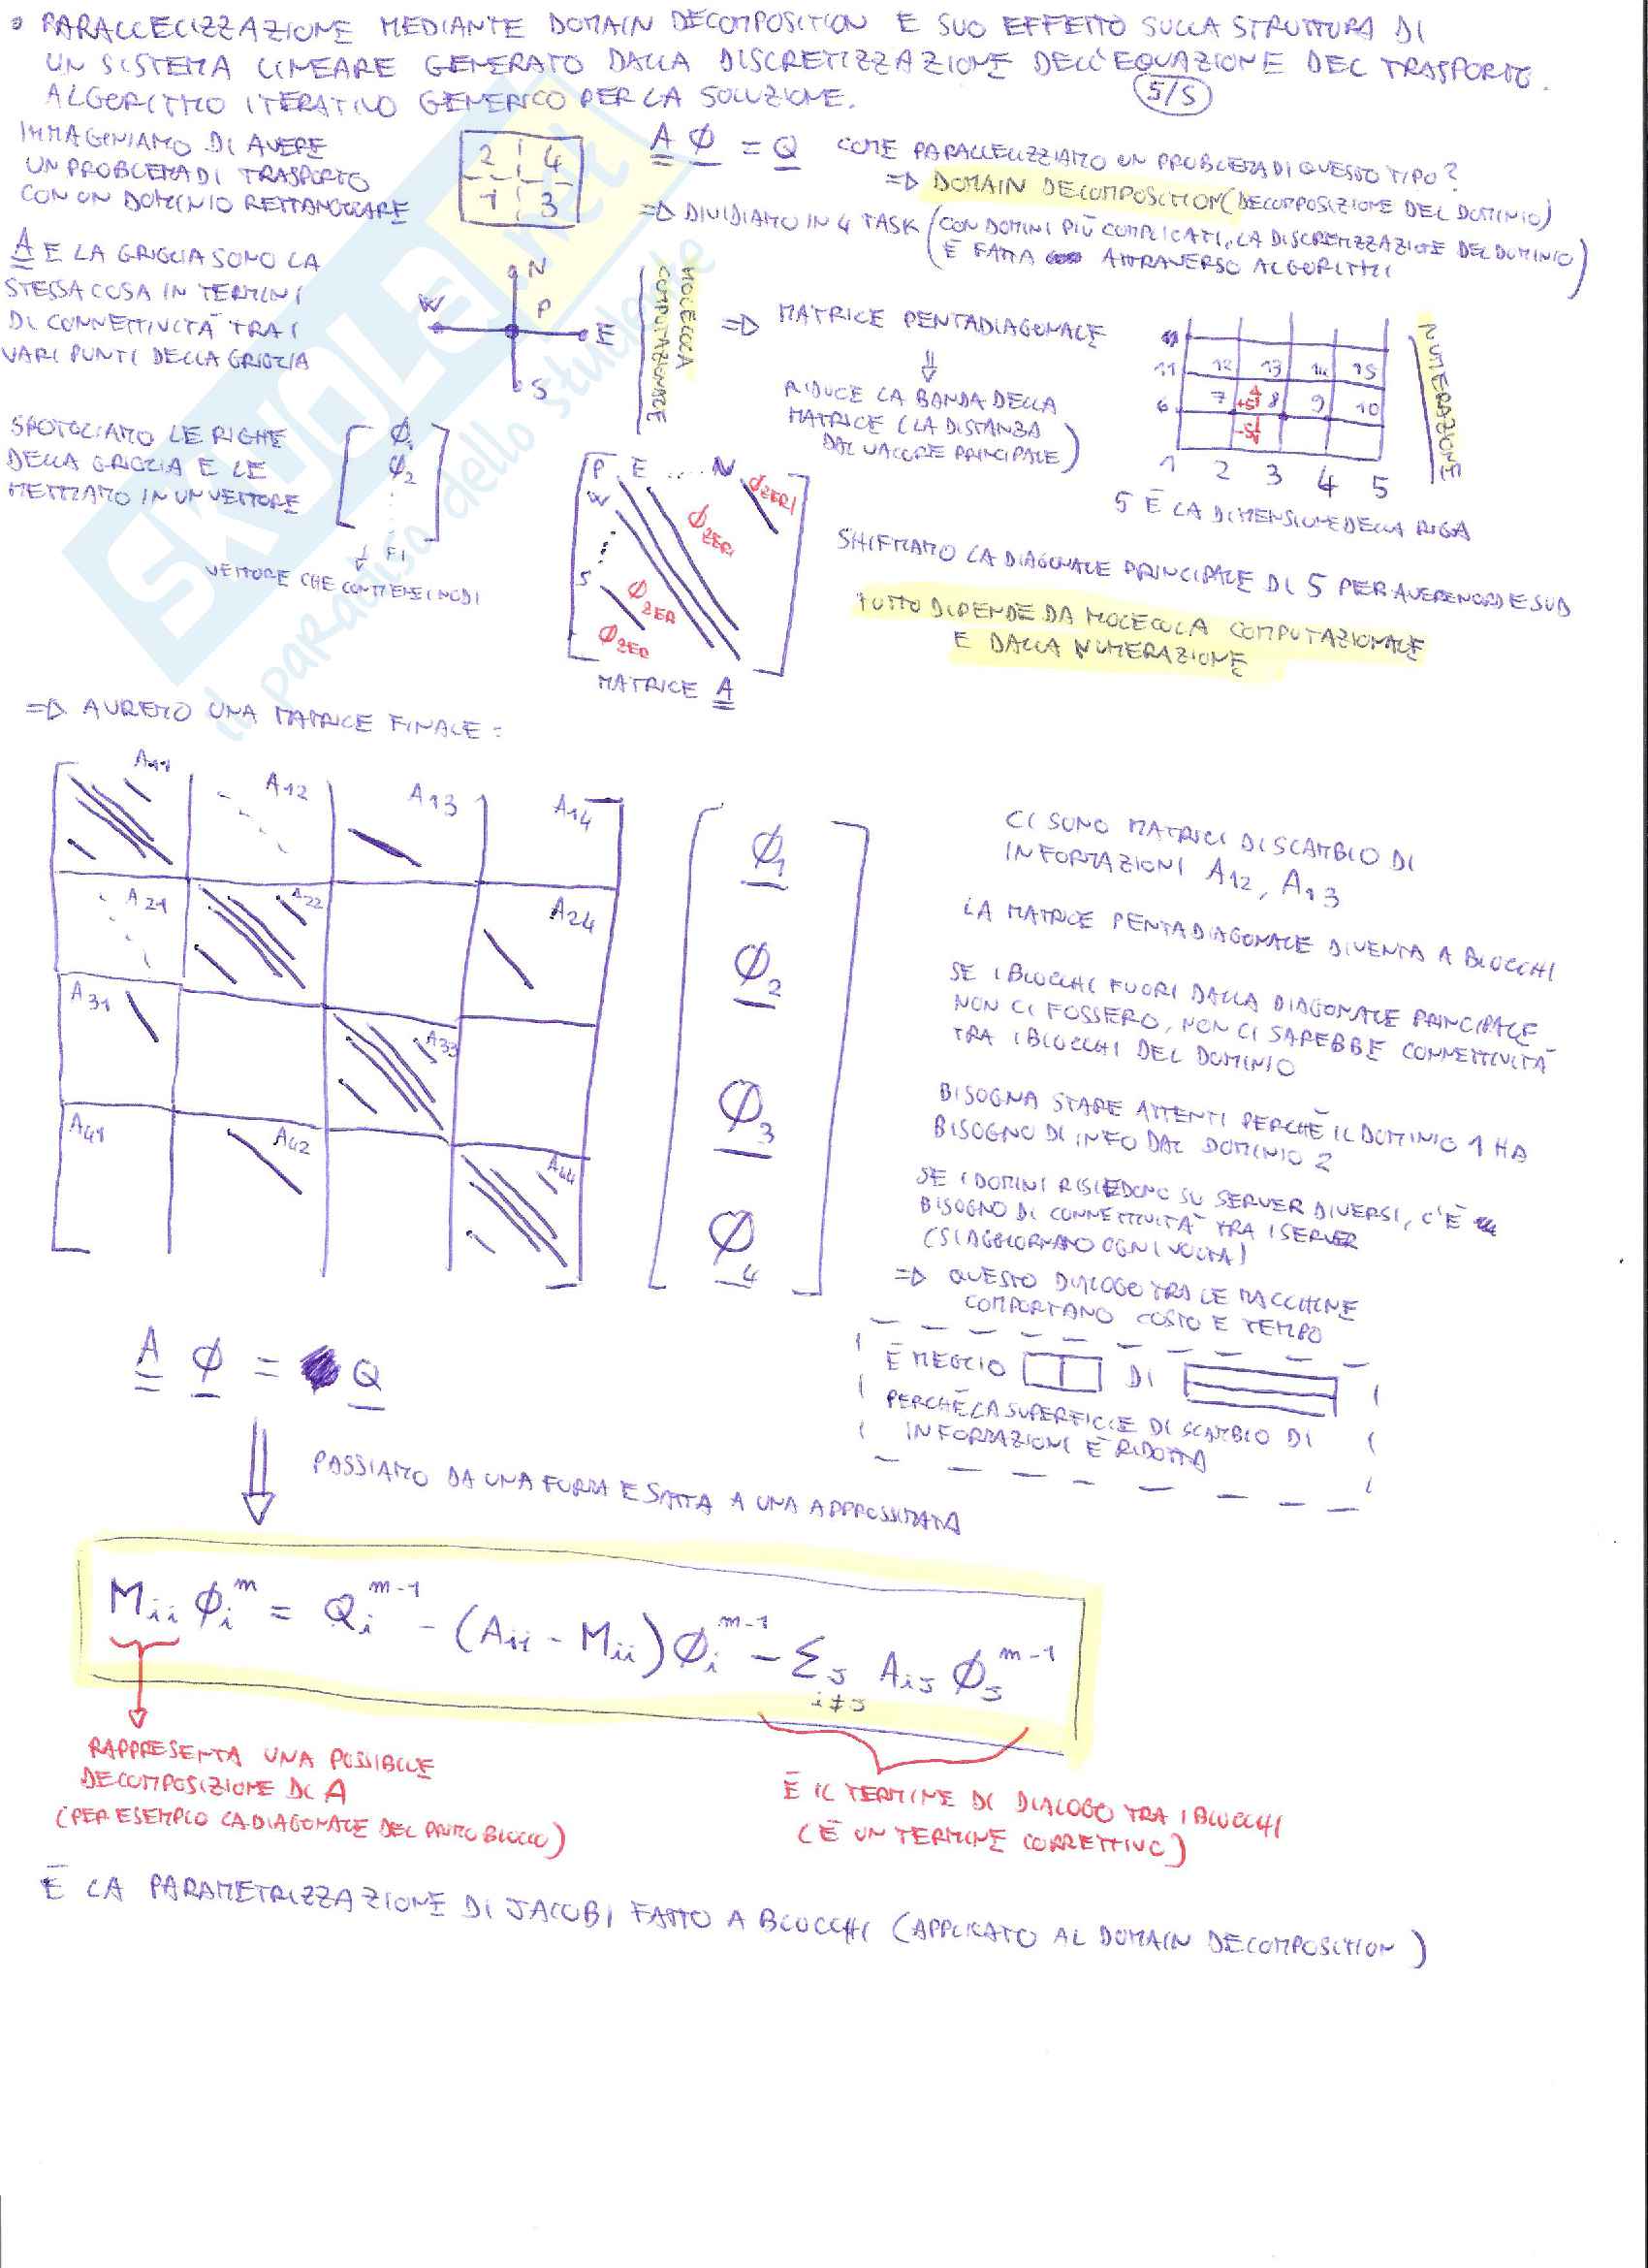 • PARALLELIZZAZIONE MEDIANTE DOMAIN DECOMPOSITION E SUO EFFETTO SULLA STRUTTURA DI
UN SISTEMA LINEARE GENERATO DALLA DISCRETIZZAZIONE DELL'EQUAZIONE DEL TRASPORTO.
ALGORITMO ITERATIVO GENERICO PER LA SOLUZIONE.
5/5
IMMAGINIAMO DI AVERE
UN PROBLEMA DI TRASPORTO
CON UN DOMINIO RETTANGOLARE
2 4
1 3
A Φ = Q COME PARALLELIZZIAMO UN PROBLEMA DI QUESTO TIPO?
=> DOMAIN DECOMPOSITION (DECOMPOSIZIONE DEL DOMINIO)
=> DIVIDIAMO IN 4 TASK (CON DOMINI PIÙ COMPLICATI, LA DISCRETIZZAZIONE DEL DOMINIO
È FATTA ATTRAVERSO ALGORITMI)
A E LA GRIGLIA SONO LA
STESSA COSA IN TERMINI
DI CONNETTIVITÀ TRA I
VARI PUNTI DELLA GRIGLIA
N
W P E
S
MOLECOLA
COMPUTAZIONALE
=> MATRICE PENTADIAGONALE
RIDUCE LA BANDA DELLA
MATRICE (LA DISTANZA
DAL VALORE PRINCIPALE)
11 12 13 14 15
6 7 +5 8 9 10
-5
1 2 3 4 5
NUMERAZIONE
5 È LA DIMENSIONE DELLA RIGA
SPOGLIAMO LE RIGHE
DELLA GRIGLIA E LE
METTIAMO IN UN VETTORE
Φ1
Φ2
FI
VETTORE CHE CONTIENE I NODI
P E .... N
W
S
ΦZERI
ΦZERI
ΦZERI
ΦZERI
MATRICE A
SHIFTIAMO LA DIAGONALE PRINCIPALE DI 5 PER AVERE NORD E SUD
TUTTO DIPENDE DA MOLECOLA COMPUTAZIONALE
E DALLA NUMERAZIONE
=> AVREMO UNA MATRICE FINALE:
A11 A12 A13 A14
A21 A22 A24
A31 A33
A41 A42 A44
Φ1
Φ2
Φ3
Φ4
CI SONO MATRICI DI SCAMBIO DI
INFORMAZIONI A12, A13
LA MATRICE PENTADIAGONALE DIVENTA A BLOCCHI
SE I BLOCCHI FUORI DALLA DIAGONALE PRINCIPALE
NON CI FOSSERO, NON CI SAREBBE CONNETTIVITÀ
TRA I BLOCCHI DEL DOMINIO
BISOGNA STARE ATTENTI PERCHÈ IL DOMINIO 1 HA
BISOGNO DI INFO DAL DOMINIO 2
SE I DOMINI RISIEDONO SU SERVER DIVERSI, C'È
BISOGNO DI CONNETTIVITÀ TRA I SERVER
(SI AGGIORNANO OGNI VOLTA)
=> QUESTO DIALOGO TRA LE MACCHINE
COMPORTANO COSTO E TEMPO
È MEGLIO DI
PERCHÈ LA SUPERFICIE DI SCAMBIO DI
INFORMAZIONI È RIDOTTA
A Φ = Q
PASSIAMO DA UNA FORMA ESATTA A UNA APPROSSIMATA
Mii Φi^m = Qi^m-1 - (Aii - Mii) Φi^m-1 - Σj i≠j Aij Φj^m-1
RAPPRESENTA UNA POSSIBILE
DECOMPOSIZIONE DI A
(PER ESEMPIO LA DIAGONALE DEL PRIMO BLOCCO)
È IL TERMINE DI DIALOGO TRA I BLOCCHI
(È UN TERMINE CORRETTIVO)
È LA PARAMETRIZZAZIONE DI JACOBI FATTO A BLOCCHI (APPLICATO AL DOMAIN DECOMPOSITION)
SKUOLA.net
il paradiso dello studente